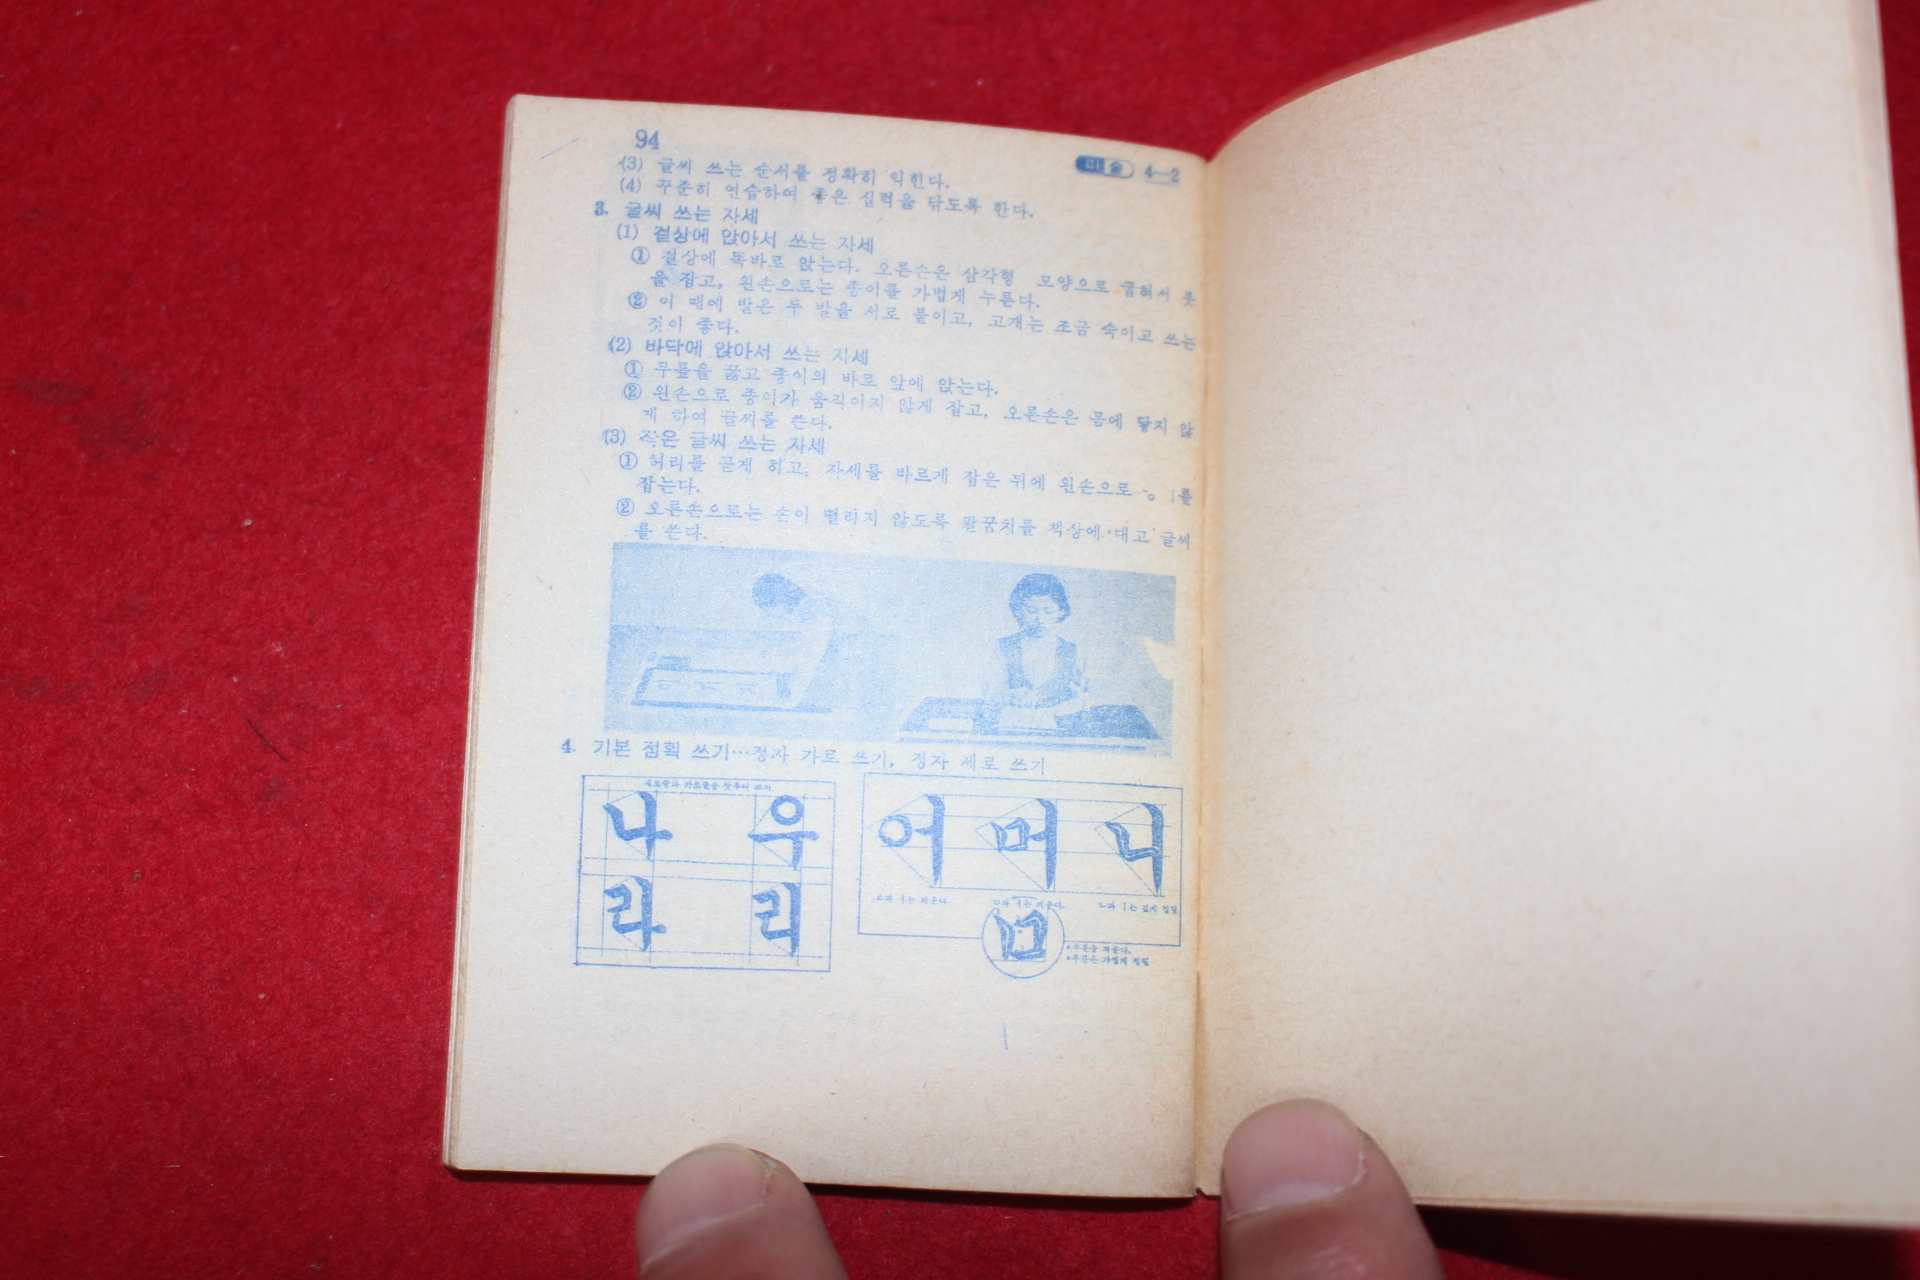 94
미술 4—2
(3) 글씨 쓰는 순서를 정확히 익힌다.
(4) 꾸준히 연습하여 좋은 실력을 닦도록 한다.
3. 글씨 쓰는 자세
(1) 걸상에 앉아서 쓰는 자세
① 걸상에 똑바로 앉는다. 오른손은 삼각형 모양으로 굽혀서 붓
을 잡고, 왼손으로는 종이를 가볍게 누른다.
② 이 때에 발은 두 발을 서로 붙이고, 고개는 조금 숙이고 쓰는
것이 좋다.
(2) 바닥에 앉아서 쓰는 자세
① 무릎을 꿇고 종이의 바로 앞에 앉는다.
② 왼손으로 종이가 움직이지 않게 잡고, 오른손은 몸에 닿지 않
게 하여 글씨를 쓴다.
(3) 작은 글씨 쓰는 자세
① 허리를 곧게 하고, 자세를 바르게 잡은 뒤에 왼손으로
잡는다.
② 오른손으로는 손이 떨리지 않도록 팔꿈치를 책상에 대고 글씨
를 쓴다.
4. 기본 점획 쓰기…정자 가로 쓰기, 정자 세로 쓰기
세로줄과 가로줄을 맞추어 쓰자
나 우
라 리
어 머 니
ㅇ과 ㅓ는 띄운다.
ㅁ과 ㅓ는 띄운다.
ㄴ과 ㅣ는 길게
ㅁ